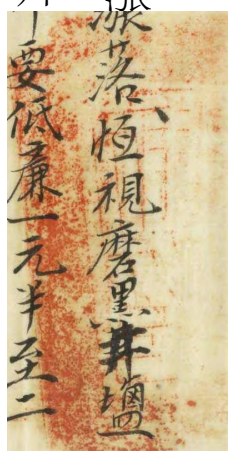 漲落恆視磨黑井塩
要低廉一元半至二